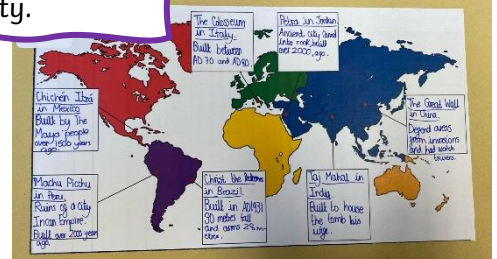 ty.
The Colosseum
in Italy.
Built between
AD 70 and AD80.
Petra in Jordan
Ancient city carved
into rock, built
over 2,000, ago.
Chichén Itzá
in Mexico
Built by The
Maya people
over 1500 years
ago.
The Great Wall
in China.
Defend areas
from invasions
and had watch
towers.
Machu Picchu
in Peru.
Ruins of a city
Incan Empire.
Built over 200 years
ago.
Christ the Redeemer
in Brazil.
Built in AD1931
30 metres tall
and arms 28 m
Taj Mahal in
India
Built to house
the tomb his
wife.